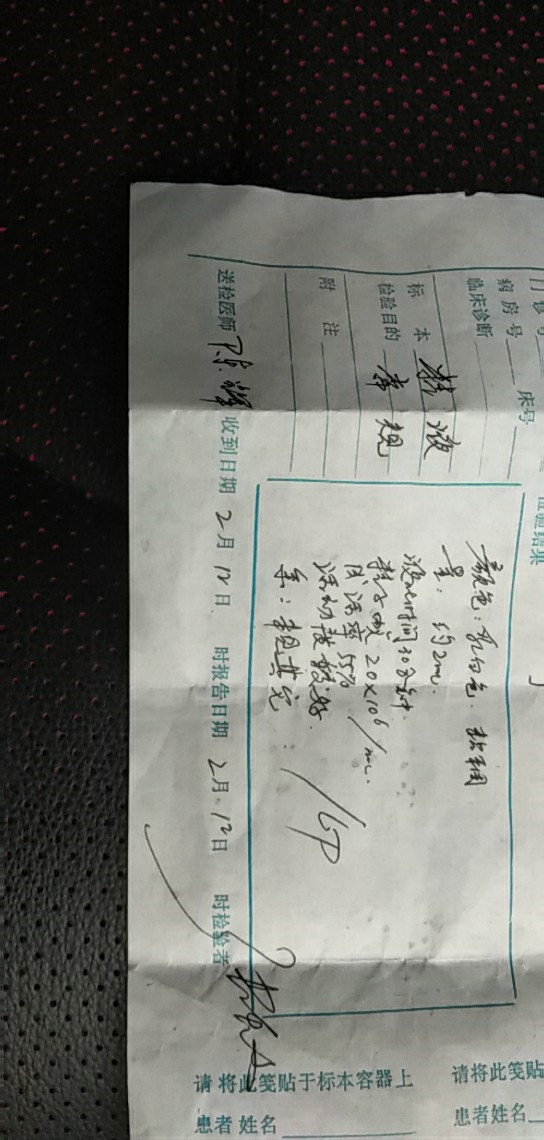 病房号 床号
临床诊断
标本 精液
检验目的 常规
附注
检验结果
颜色：乳白色． 粘稠
量：约2ml．
液化时间30分钟．
精子数 20×10⁶/ml．
成活率 55%
活动度 较好．
送检医师 陈 收到日期 2月12日． 时报告日期 2月．12日 时检验者
请将此笺贴于标本容器上
患者姓名
请将此笺贴
患者姓名